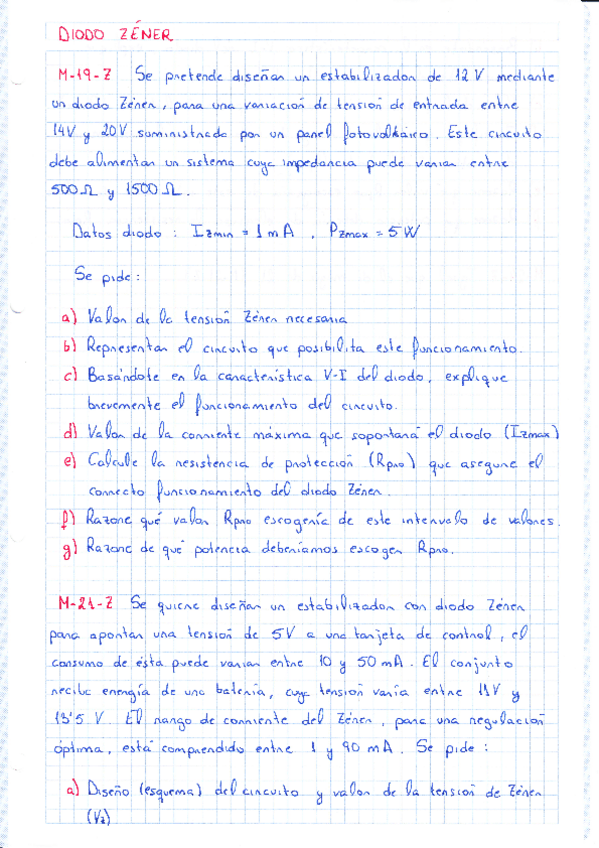 DIODO ZÉNER
M-19-Z Se pretende diseñar un estabilizador de 12 V mediante
un diodo Zéner, para una variación de tensión de entrada entre
14V y 20V suministrada por un panel fotovoltáico. Este circuito
debe alimentar un sistema cuya impedancia puede variar entre
500 Ω y 1500 Ω.
Datos diodo : Izmin = 1 mA , Pzmax = 5 W
Se pide :
a) Valor de la tensión Zéner necesaria
b) Representar el circuito que posibilita este funcionamiento.
c) Basándote en la característica V-I del diodo, explique
brevemente el funcionamiento del circuito.
d) Valor de la corriente máxima que soportará el diodo (Izmax)
e) Calcule la resistencia de protección (Rpro) que asegure el
correcto funcionamiento del diodo Zéner.
f) Razone qué valor Rpro escogería de este intervalo de valores.
g) Razone de qué potencia deberíamos escoger Rpro.
M-21-Z Se quiere diseñar un estabilizador con diodo Zéner
para aportar una tensión de 5V a una tarjeta de control, el
consumo de ésta puede variar entre 10 y 50 mA. El conjunto
recibe energía de una batería, cuya tensión varía entre 11V y
13'5 V. El rango de corriente del Zéner, para una regulación
óptima, está comprendido entre 1 y 90 mA. Se pide :
a) Diseño (esquema) del circuito y valor de la tensión de Zéner
(Vz)